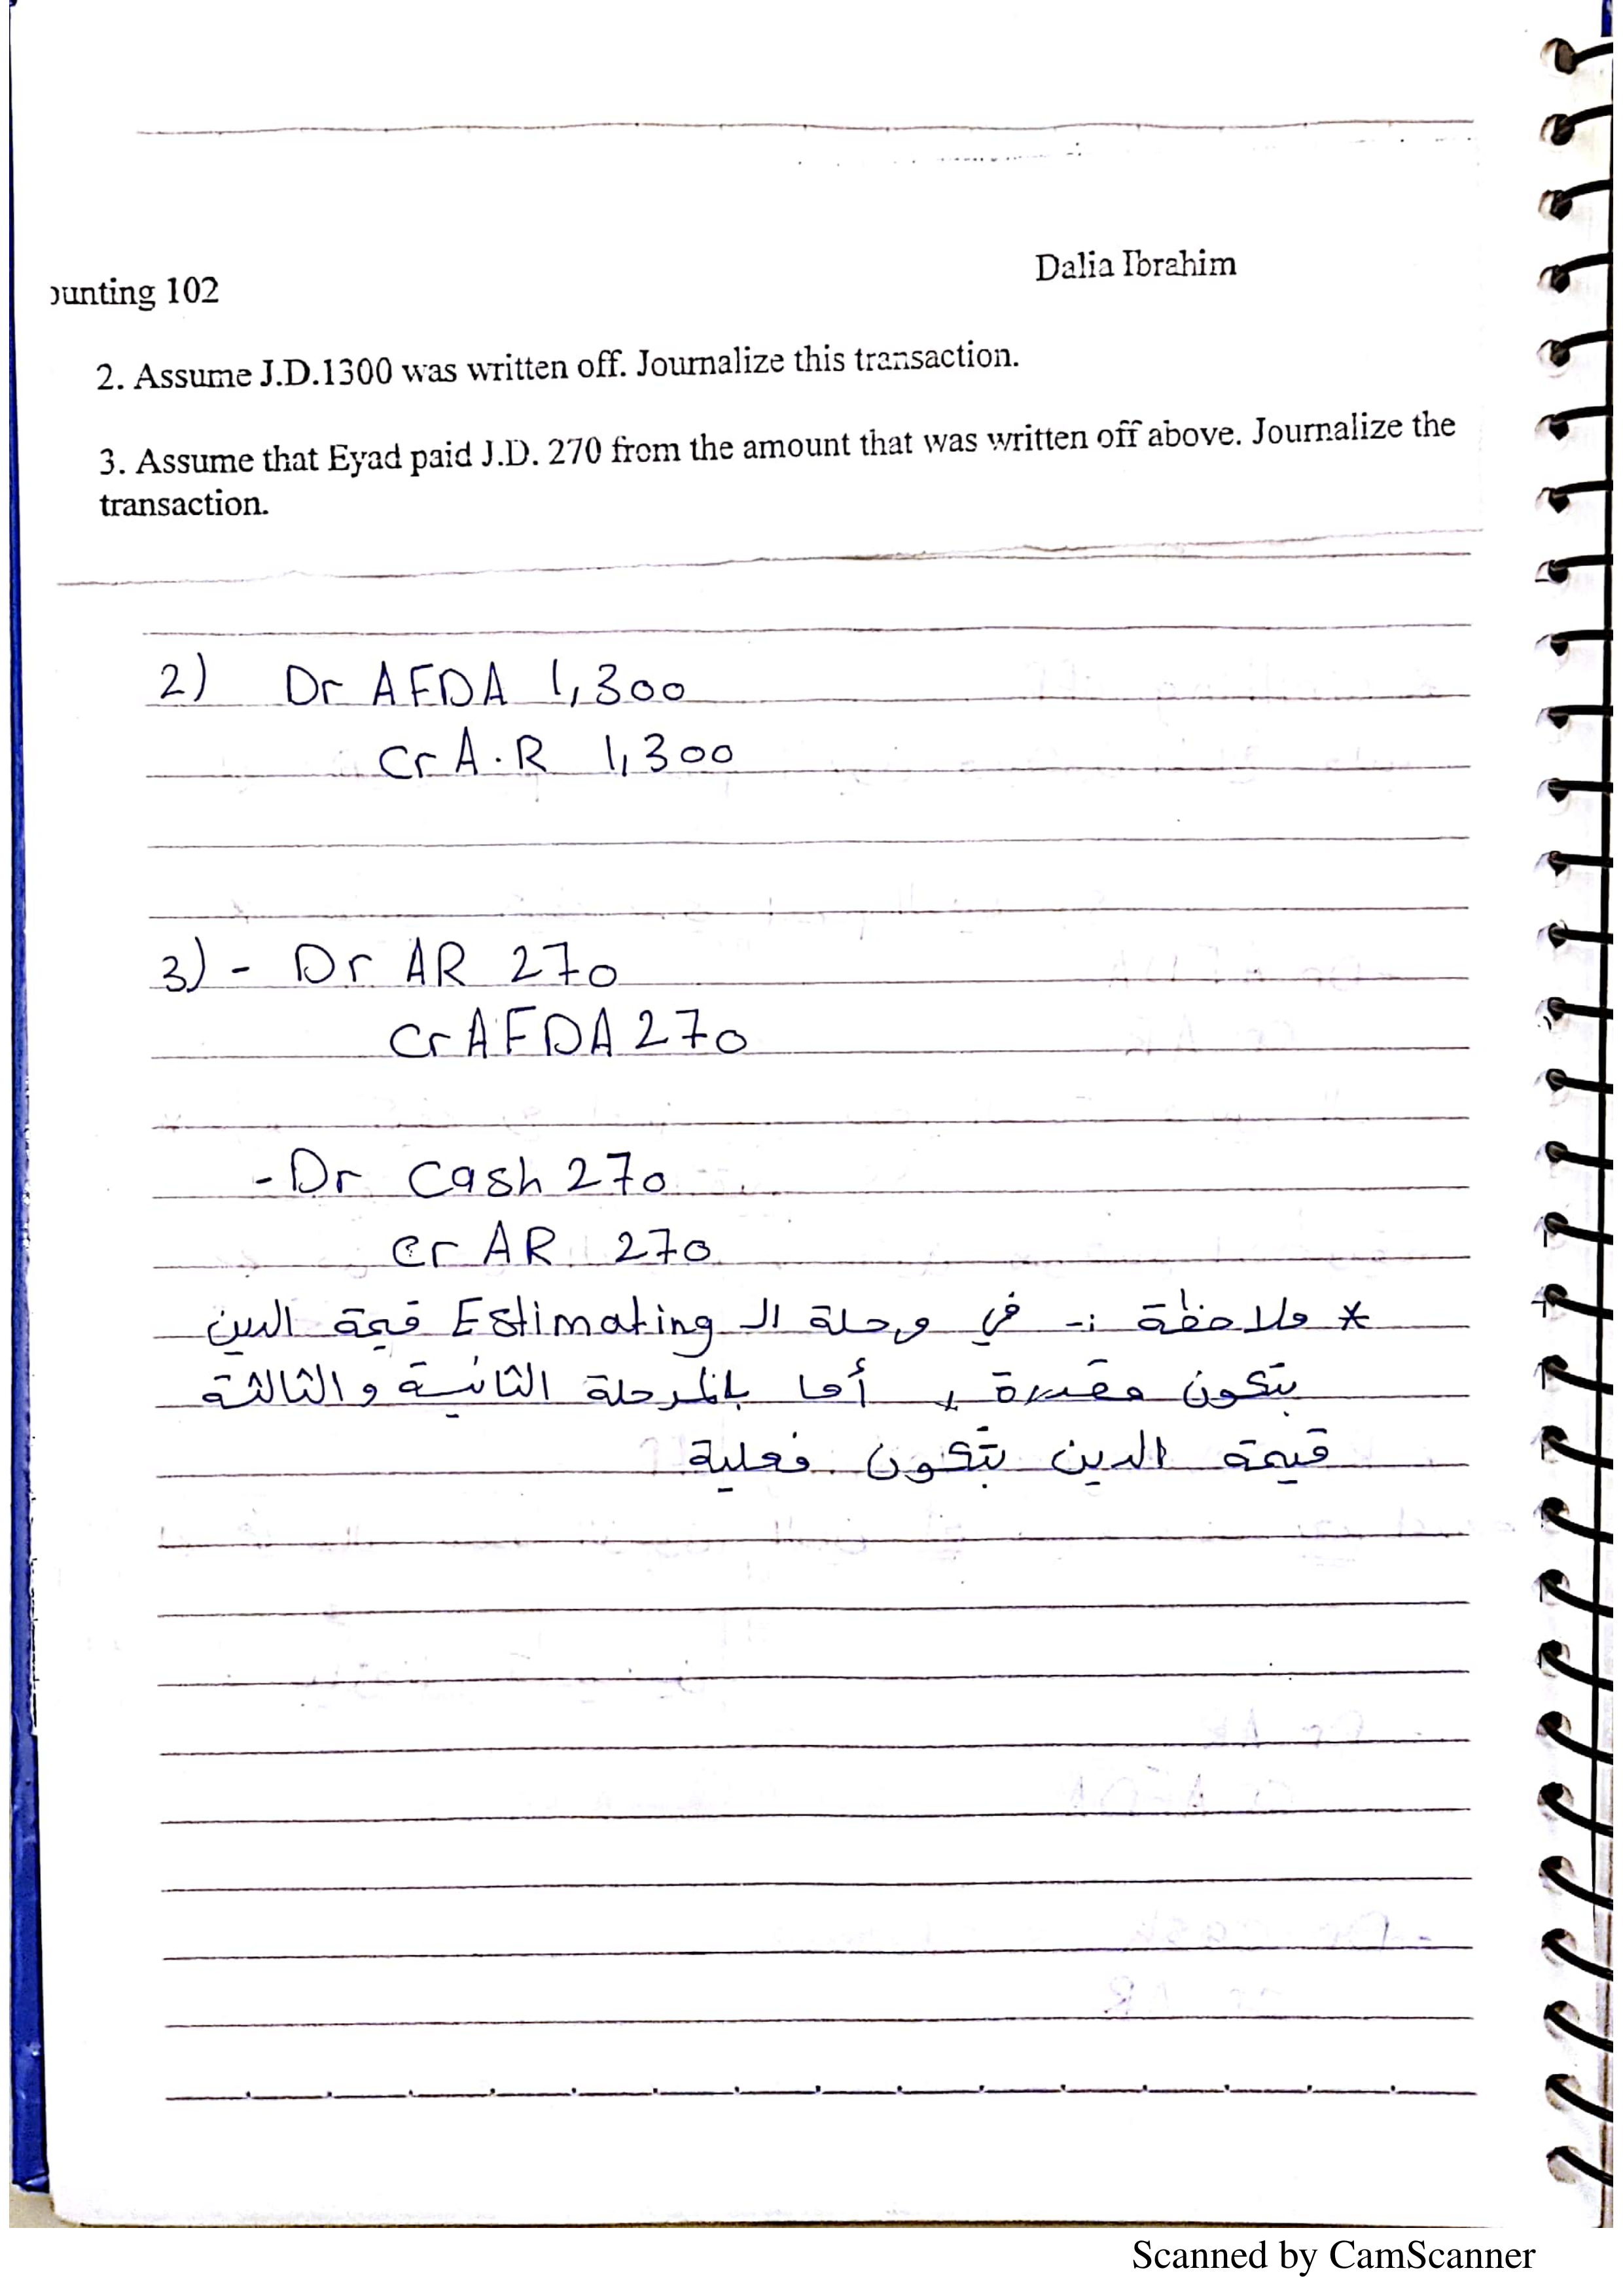 Dalia Ibrahim
ounting 102
2. Assume J.D.1300 was written off. Journalize this transaction.
3. Assume that Eyad paid J.D. 270 from the amount that was written off above. Journalize the
transaction.
2) Dr AFDA 1,300
Cr A.R 1,300
3) - Dr AR 270
Cr AFDA 270
- Dr Cash 270
Cr AR 270
* ملاحظة :- في مرحلة الـ Estimating قيمة الدين
بتكون مقدرة , أما بالمرحلة الثانية والثالثة
قيمة الدين بتكون فعلية
Scanned by CamScanner